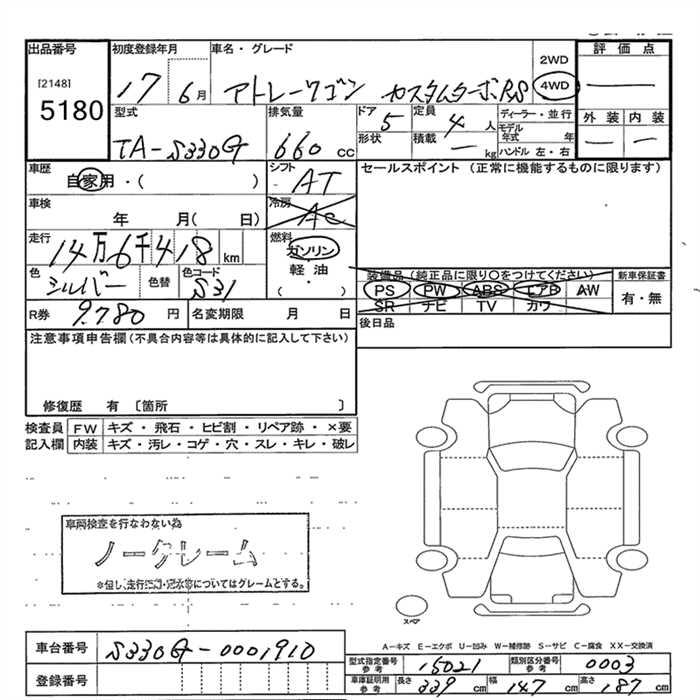 出品番号 初度登録年月 車名・グレード 2WD 評価点
[2148]
5180
17 6月 アトレーワゴン カスタムターボRS 4WD —
型式 排気量 ドア 定員 ディーラー・並行 外装 内装
TA-S330G 660 cc 5 4 人 モデル年式 年 — —
形状 積載 — kg ハンドル 左・右
車歴 シフト セールスポイント (正常に機能するものに限ります)
自家用・( ) AT
車検 冷房
年 月( 日) AC
走行 燃料
14万6千418 km ガソリン
色 色替 色コード 軽油 装備品(純正品に限り○をつけてください) 新車保証書
シルバー S31 ・( ) PS PW ABS エアB AW 有・無
R券 9,780 円 名変期限 月 日 SR ナビ TV カワ
後日品
注意事項申告欄(不具合内容等は具体的に記入して下さい)
修復歴 有 〔箇所 〕
検査員 FW キズ・飛石・ヒビ割・リペア跡・×要
記入欄 内装 キズ・汚レ・コゲ・穴・スレ・キレ・破レ
車両検査を行なわない為
ノークレーム
※但し、走行距離・冠水車についてはクレームとする。
スペア
車台番号 S330G-0001910
A-キズ E-エクボ U-凹み W-補修跡 S-サビ C-腐食 XX-交換済
登録番号
型式指定番号 参考 15021 類別区分番号 参考 0003
車庫証明用 参考 長さ 339 cm 幅 147 cm 高さ 187 cm